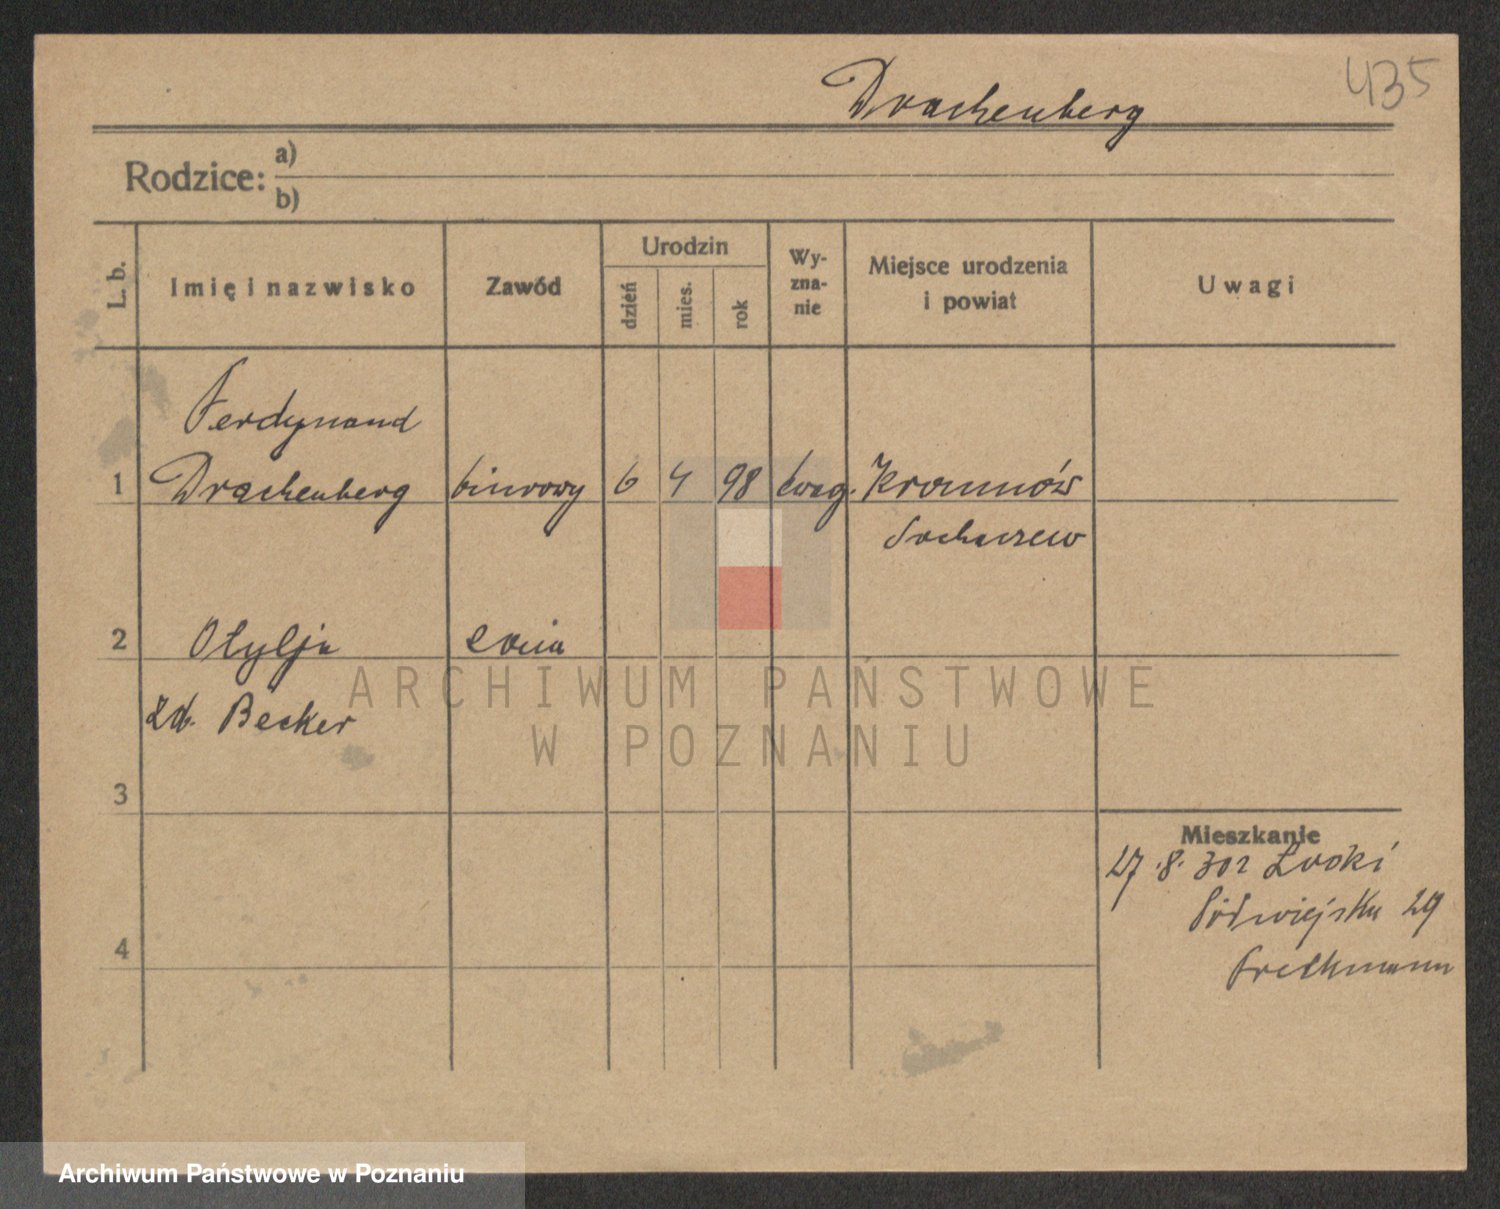 Drachenberg
435
Rodzice: a)
b)
L. b.
Imię i nazwisko
Zawód
Urodzin
dzień
mies.
rok
Wy-
zna-
nie
Miejsce urodzenia
i powiat
Uwagi
Ferdynand
1 Drachenberg biurowy 6 4 98 ewag. Kromnów
Sochaczew
2 Otylja
zd. Becker
3
Mieszkanie
27.8.30 z Łodzi
Półwiejska 29
4
ARCHIWUM PAŃSTWOWE
W POZNANIU
Archiwum Państwowe w Poznaniu